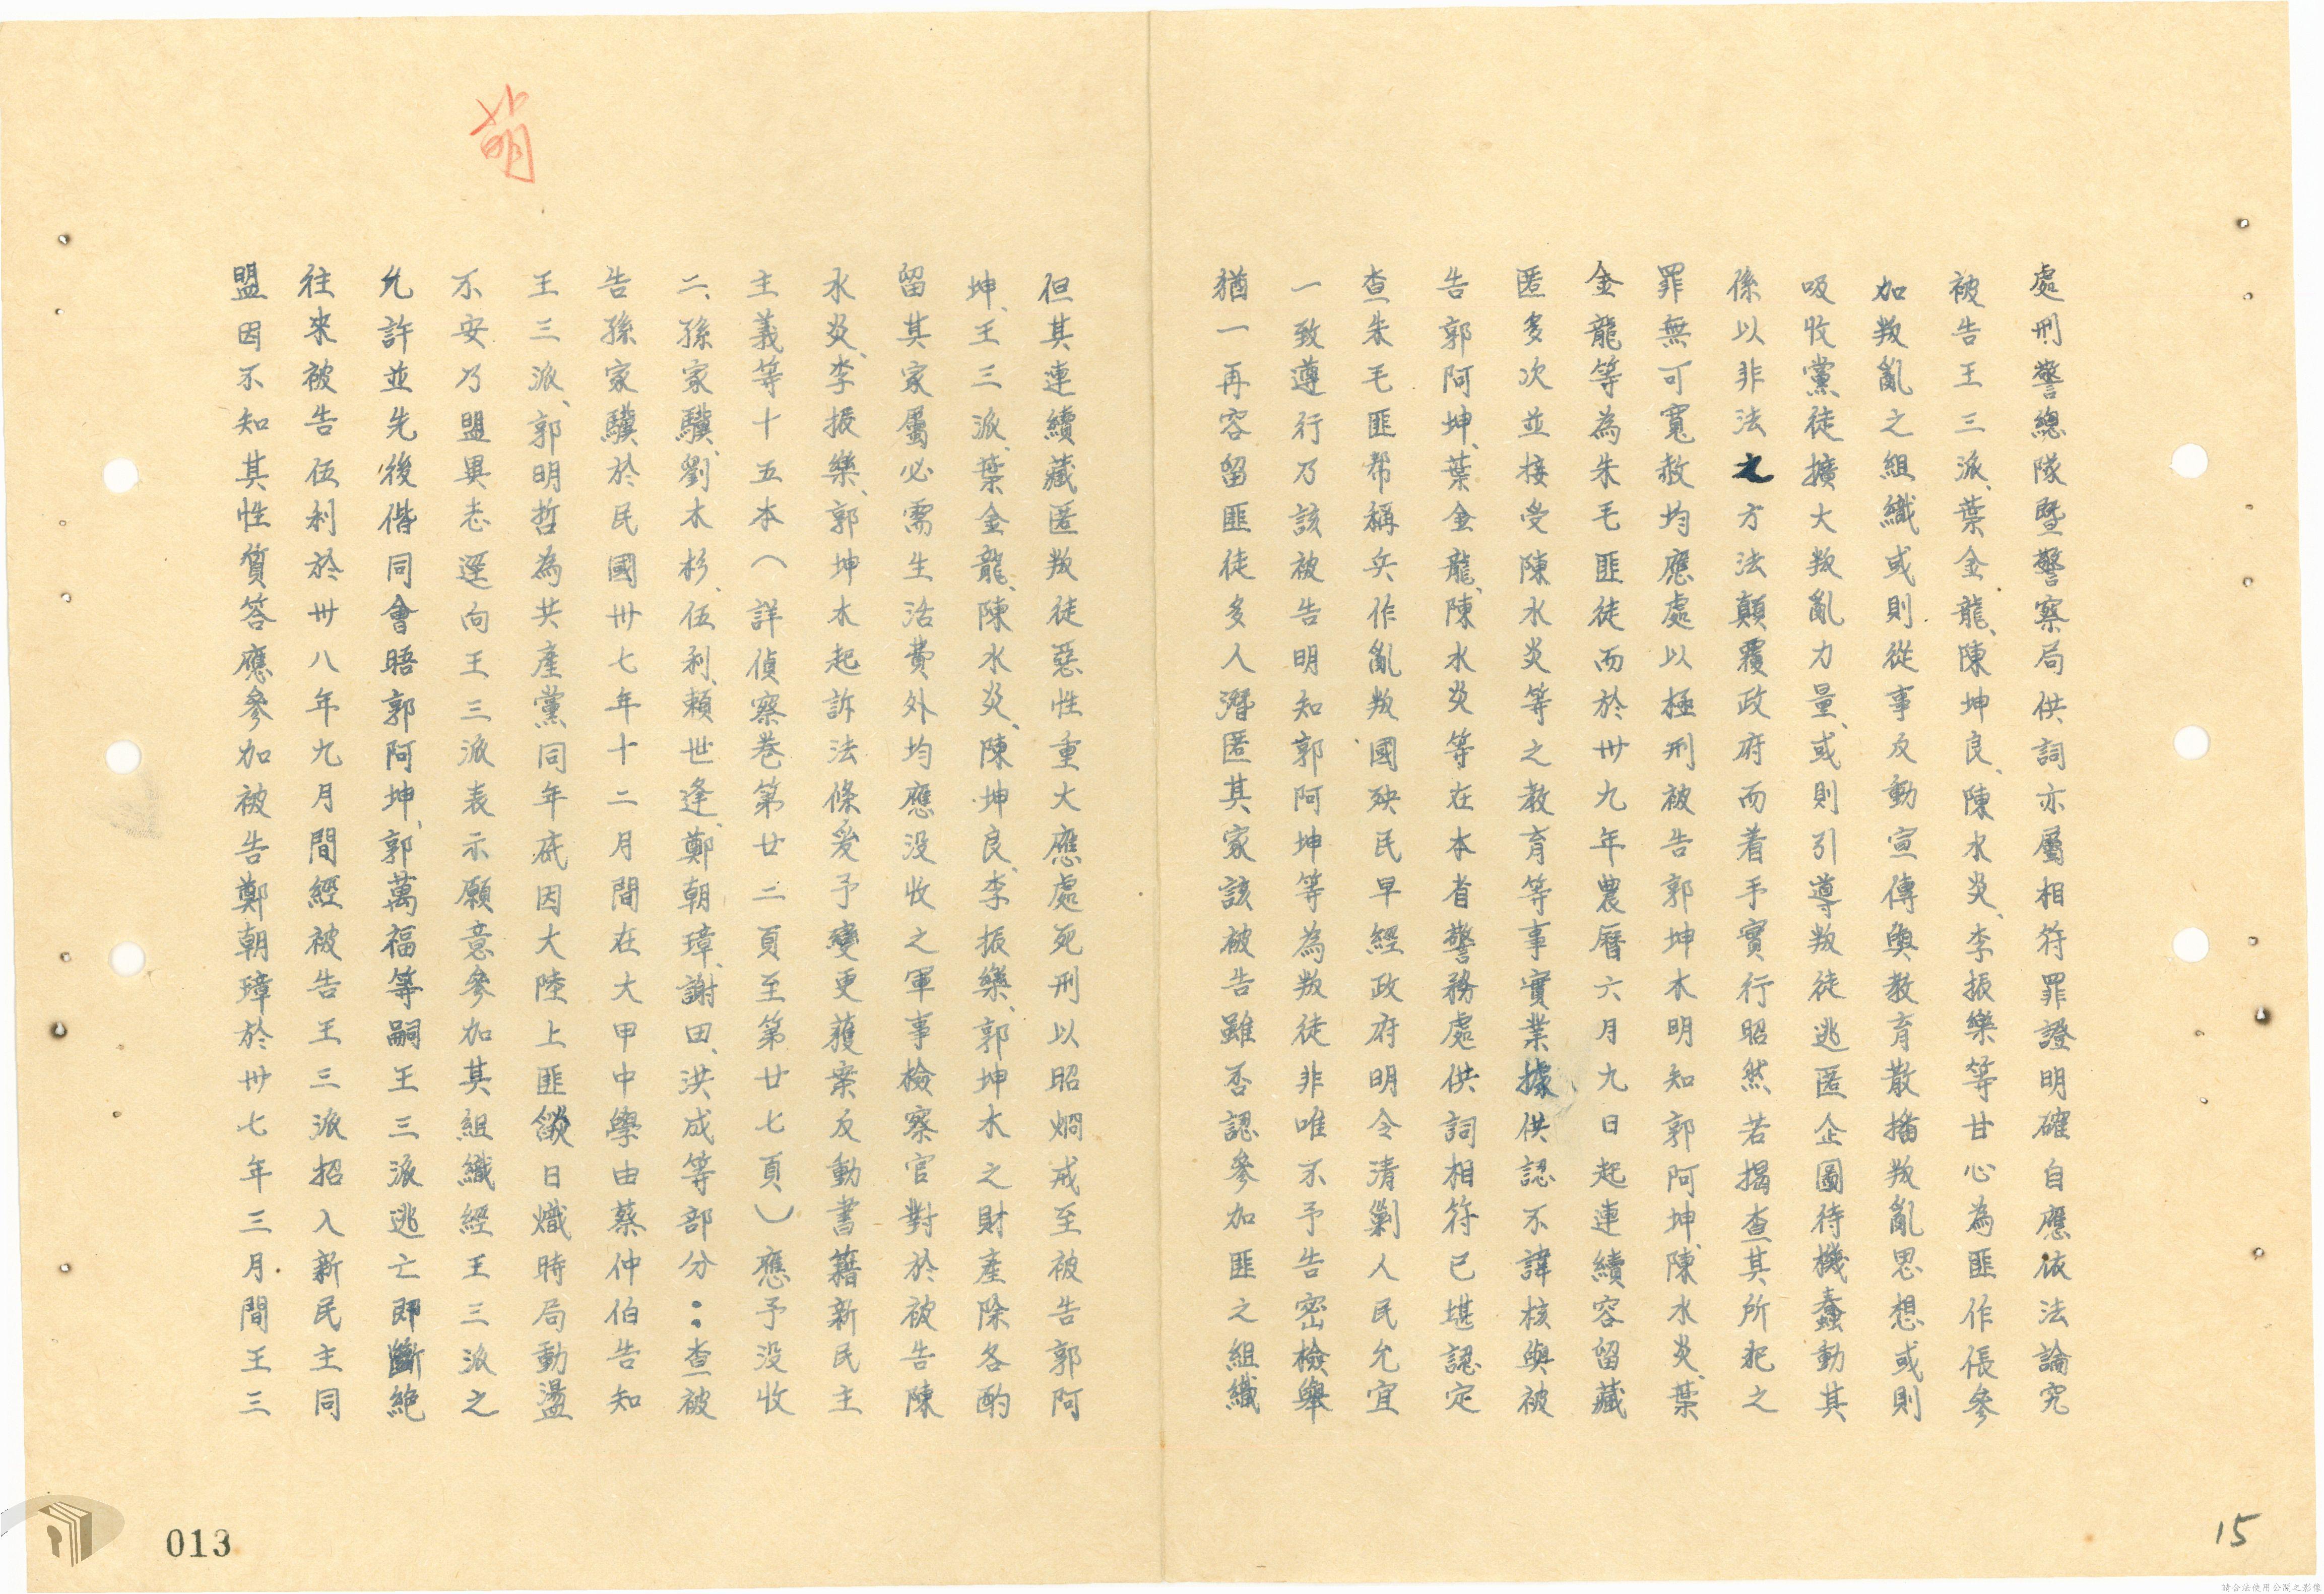 處刑警總隊暨警察局供詞亦屬相符罪證明確自應依法論究
被告王三派、葉金龍、陳坤良、陳水炎、李振樂等甘心為匪作倀參
加叛亂之組織或則從事反動宣傳與教育散播叛亂思想或則
吸收黨徒擴大叛亂力量、或則引導叛徒逃匿企圖待機蠢動其
係以非法之方法顛覆政府而着手實行昭然若揭查其所犯之
罪無可寬赦均應處以極刑被告郭坤木明知郭阿坤、陳水炎、葉
金龍等為朱毛匪徒而於卅九年農曆六月九日起連續容留藏
匿多次並接受陳水炎等之教育等事實業據供認不諱核與被
告郭阿坤、葉金龍、陳水炎等在本省警務處供詞相符已堪認定
查朱毛匪幫稱兵作亂叛國殃民早經政府明令清剿人民允宜
一致遵行乃該被告明知郭阿坤等為叛徒非唯不予告密檢舉
猶一再容留匪徒多人潛匿其家該被告雖否認參加匪之組織
但其連續藏匿叛徒惡性重大應處死刑以昭烱戒至被告郭阿
坤、王三派、葉金龍、陳水炎、陳坤良、李振樂、郭坤木之財產除各酌
留其家屬必需生活費外均應沒收之軍事檢察官對於被告陳
水炎、李振樂、郭坤木起訴法條爰予變更獲案反動書籍新民主
主義等十五本（詳偵察卷第廿二頁至第廿七頁）應予沒收
二、孫家驥、劉木杉、伍利、賴世逢、鄭朝璋、謝田、洪成等部分：查被
告孫家驥於民國卅七年十二月間在大甲中學由蔡仲伯告知
王三派、郭明哲為共產黨同年底因大陸上匪燄日熾時局動盪
不安乃盟異志逕向王三派表示願意參加其組織經王三派之
允許並先後偕同會晤郭阿坤、郭萬福等嗣王三派逃亡即斷絕
往來被告伍利於卅八年九月間經被告王三派招入新民主同
盟因不知其性質答應參加被告鄭朝璋於卅七年三月間王三
萌
013
15
請合法使用公開之影像